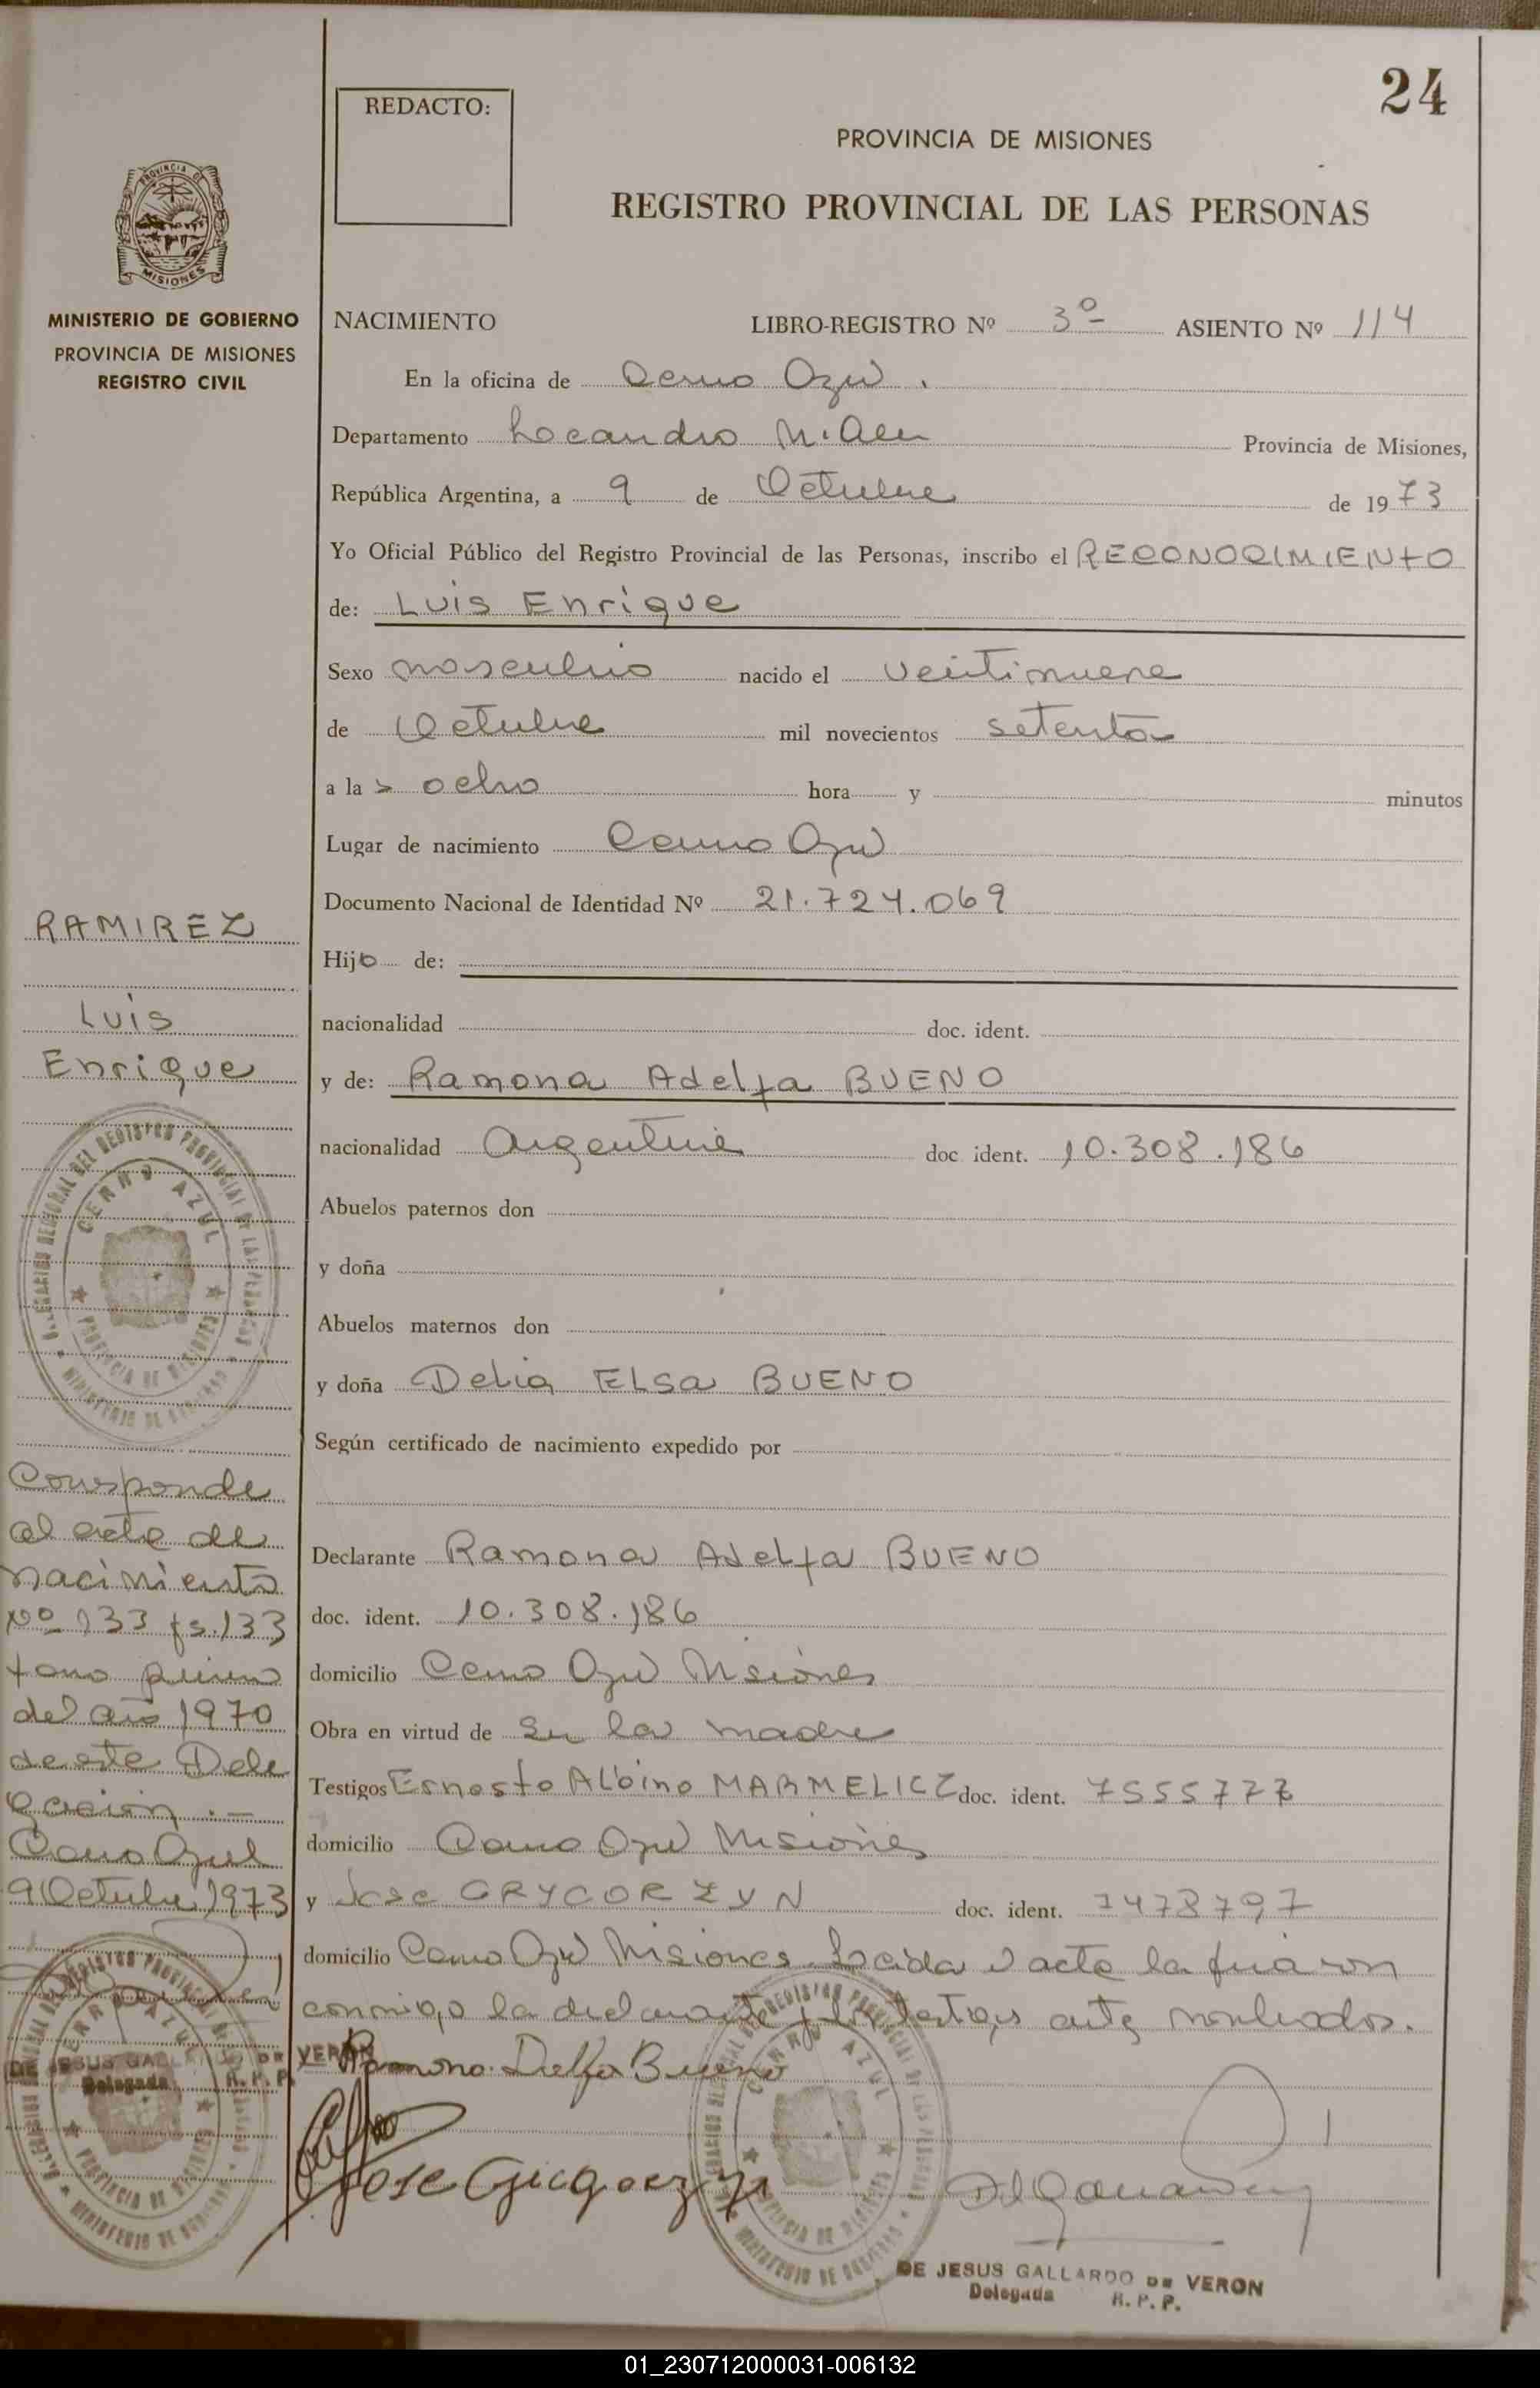 24
REDACTO:
PROVINCIA DE MISIONES
REGISTRO PROVINCIAL DE LAS PERSONAS
PROVINCIA DE
MISIONES
MINISTERIO DE GOBIERNO
PROVINCIA DE MISIONES
REGISTRO CIVIL
NACIMIENTO LIBRO-REGISTRO Nº 3º ASIENTO Nº 114
En la oficina de Cerro Azul.
Departamento Leandro N. Alem Provincia de Misiones,
República Argentina, a 9 de Octubre de 1973
Yo Oficial Público del Registro Provincial de las Personas, inscribo el RECONOCIMIENTO
de: Luis Enrique
Sexo masculino nacido el veintinueve
de Octubre mil novecientos setenta
a las ocho hora y minutos
Lugar de nacimiento Cerro Azul
Documento Nacional de Identidad Nº 21.724.069
Hijo de:
nacionalidad doc. ident.
y de: Ramona Adelfa BUENO
nacionalidad argentina doc. ident. 10.308.186
Abuelos paternos don
y doña
Abuelos maternos don
y doña Delia ELSA BUENO
Según certificado de nacimiento expedido por
Declarante Ramona Adelfa BUENO
doc. ident. 10.308.186
domicilio Cerro Azul Misiones
Obra en virtud de ser la madre
Testigos Ernesto Albino MARMELICZ doc. ident. 7555777
domicilio Cerro Azul Misiones
y Jose GRYGORZYN doc. ident. 7478797
domicilio Cerro Azul Misiones. Leida el acta la firman
conmigo la declarante y los testigos antes nombrados.
Ramona Delfa Bueno
Jose
DE JESUS GALLARDO DE VERON
Delegada R. P. P.
RAMIREZ
Luis
Enrique
DEL REGISTRO PROVINCIAL DE LAS PERSONAS
CERRO AZUL
PROVINCIA DE MISIONES
MINISTERIO DE GOBIERNO
Corresponde
al acta de
nacimiento
Nº 133 fs. 133
tomo primero
del año 1970
de esta Dele
gación.-
Cerro Azul
9 Octubre 1973
DE JESUS GALLARDO DE VERON
Delegada R. P. P.
01_230712000031-006132